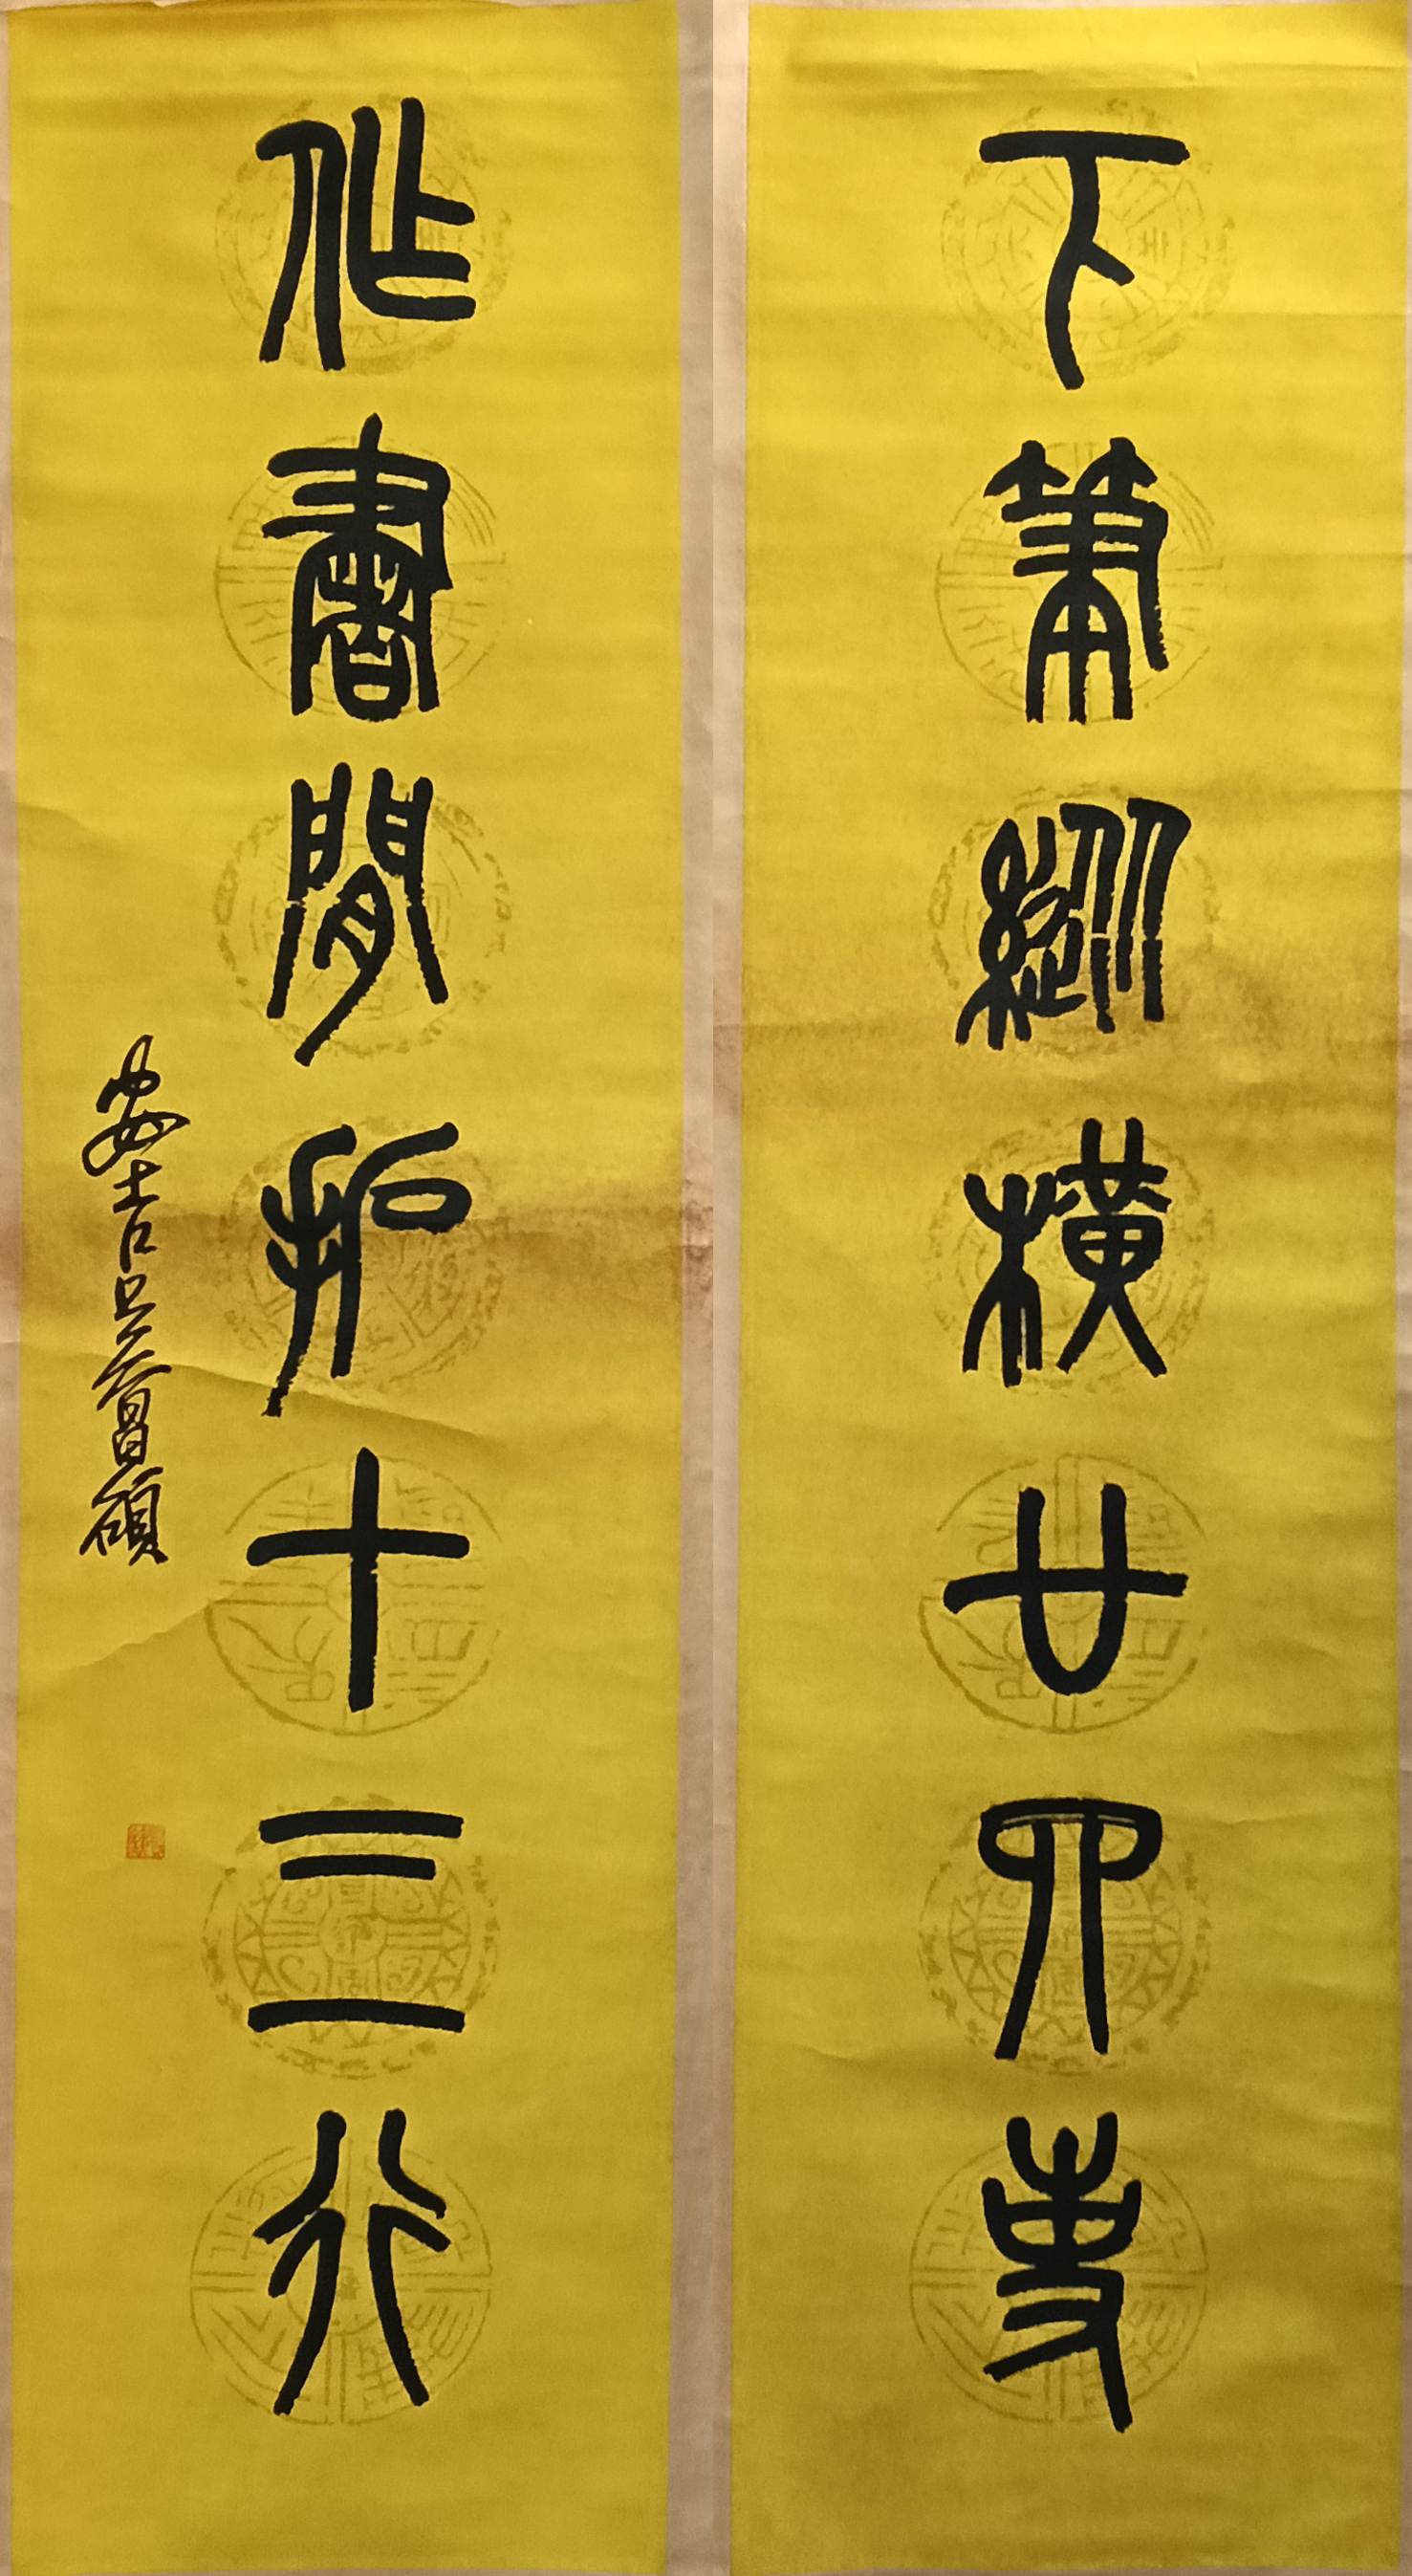 下筆縱橫廿四史
作書閒拓十三行
安吉吳昌碩